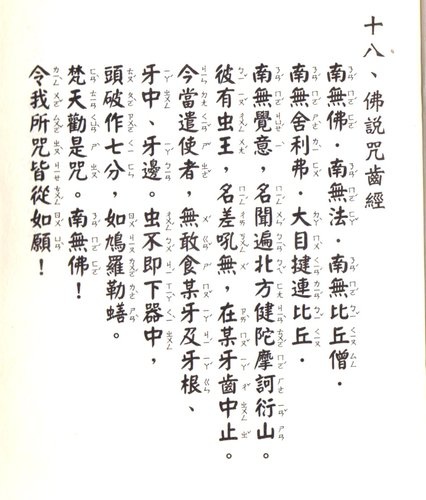 十八、佛說咒齒經
南無佛．南無法．南無比丘僧．
南無舍利弗．大目揵連比丘．
南無覺意，名聞遍北方健陀摩訶衍山。
彼有虫王，名差吼無，在某牙齒中止。
今當遣使者，無敢食某牙及牙根、
牙中、牙邊。虫不即下器中，
頭破作七分，如鳩羅勒蟮。
梵天勸是咒。南無佛！
令我所咒皆從如願！